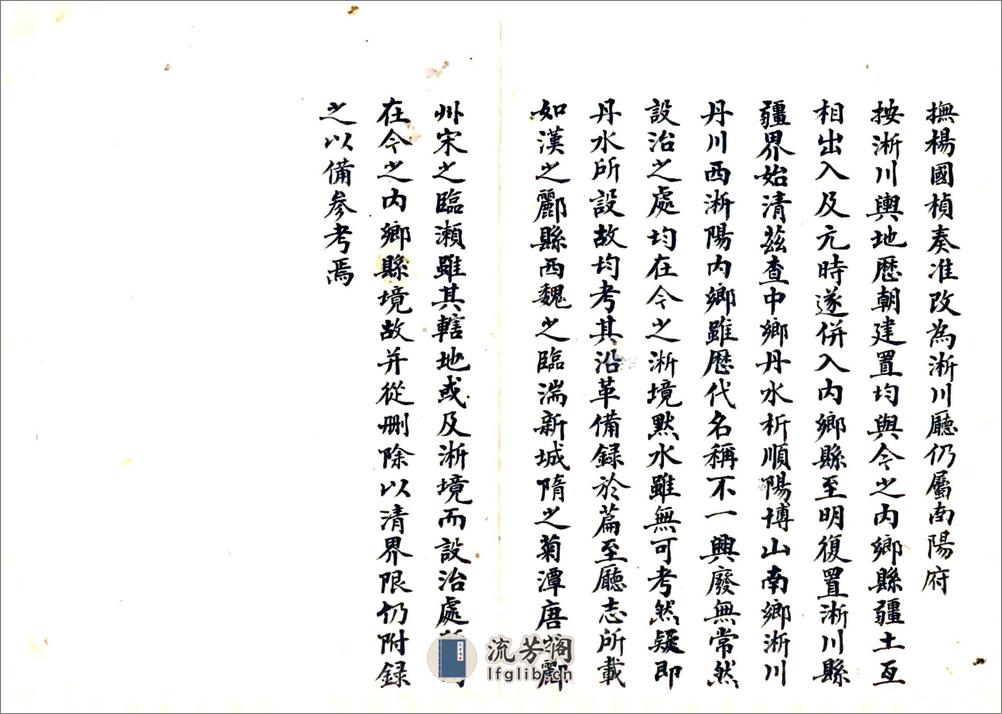 撫楊國楨奏准改為淅川廳仍屬南陽府
按淅川輿地歷朝建置均與今之內鄉縣疆土互
相出入及元時遂併入內鄉縣至明復置淅川縣
疆界始清茲查中鄉丹水析順陽博山南鄉淅川
丹川西淅陽內鄉雖歷代名稱不一興廢無常然
設治之處均在今之淅境黙水雖無可考然疑即
丹水所設故均考其沿革備録於篇至廳志所載
如漢之酈縣西魏之臨湍新城隋之菊潭唐之酈
州宋之臨瀬雖其轄地或及淅境而設治處
在今之內鄉縣境故并從刪除以清界限仍附録
之以備參考焉
流芳阁
lfglib.cn